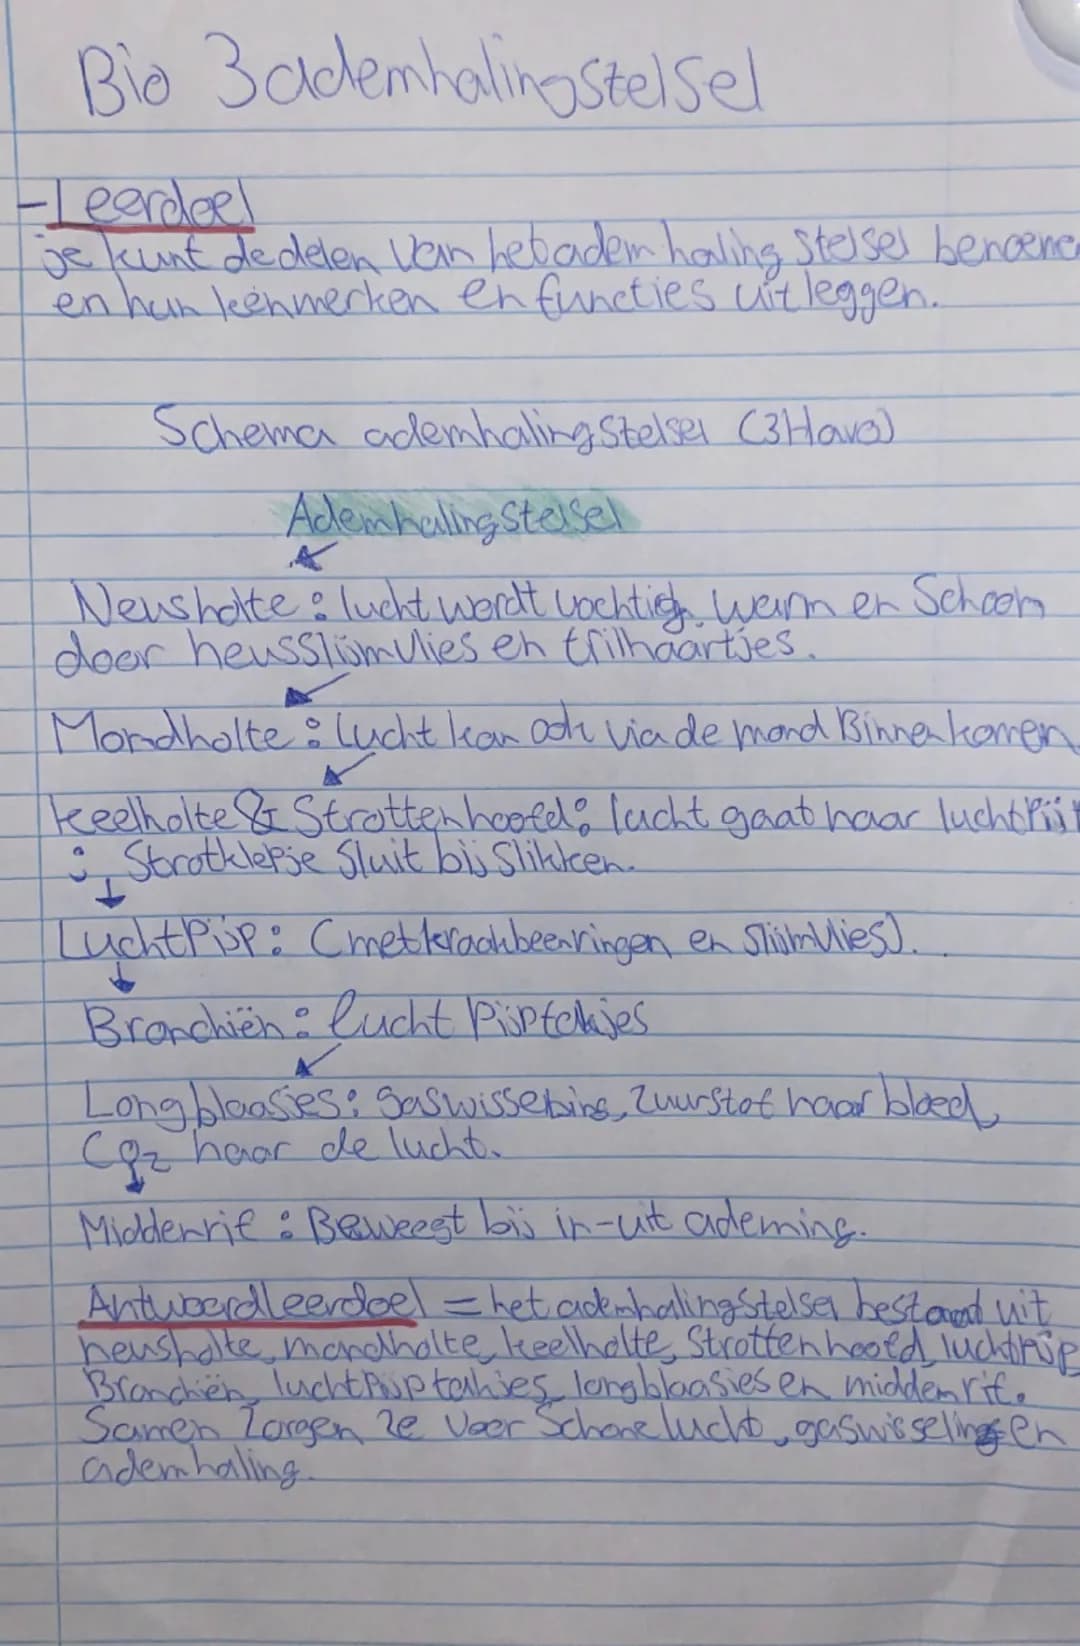 Bio 3 ademhalingstelsel
- Leerdoel
je kunt de delen van het adem haling stelsel benoeme
en hun kenmerken en functies uitleggen.
Schema ademhalingstelsel (3Havo)
Ademhalingstelsel
Neusholte: lucht wordt vochtig, warm en Schoon
door neusslijmvlies en trilhaartjes.
Mondholte: lucht kan ook via de mond Binnen komen
keelholte & Strottenhoofd: lucht gaat naar luchtpijp
: Strotklepje Sluit bij Slikken.
Luchtpijp: (met kraakbeenringen en slijmvlies).
Bronchiën: lucht pijptakjes
Longblaasjes: gaswisseling, zuurstof naar bloed,
CO2 naar de lucht.
Middenrif: Beweegt bij in-uit ademing.
Antwoord leerdoel = het ademhalingstelsel bestaad uit
neusholte, mondholte, keelholte, Strottenhoofd, luchtpijp
Bronchiën, luchtpijptakjes, longblaasjes en middenrif.
Samen Zorgen ze voor Schone lucht, gaswisseling en
ademhaling.